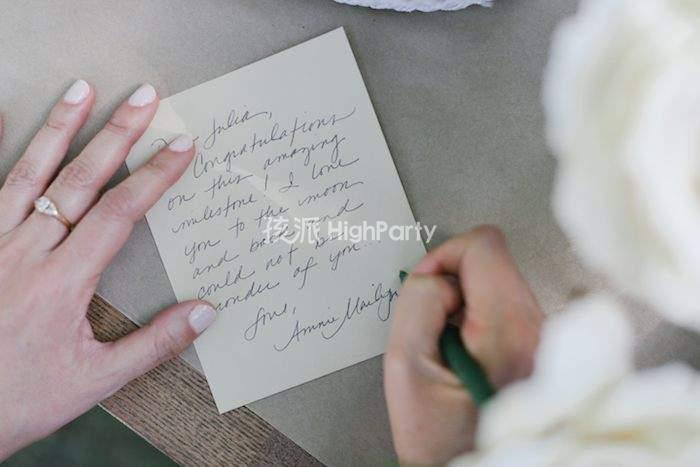 Julia,
Congratulations
on this amazing
milestone! I love
you to the moon
and back and
could not be
of you...
love,
孩派 HighParty